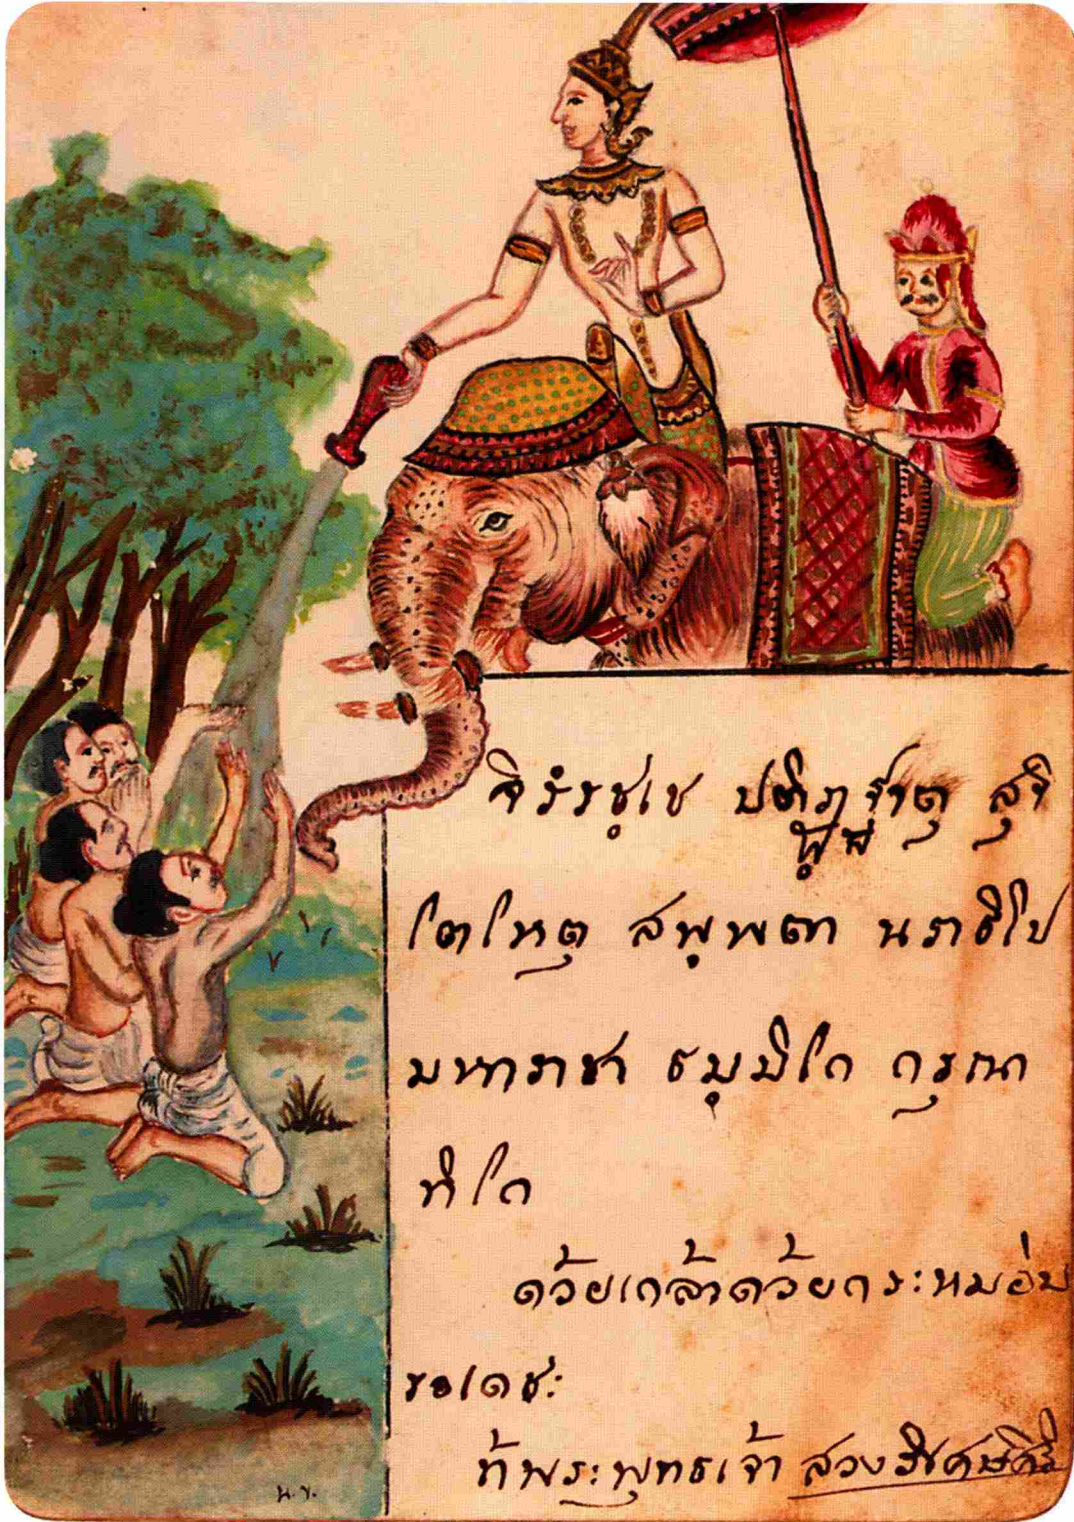 จิรํรชฺเช ปติฏฺฐาตุ สุจิ
โตโหตุ สพฺพตา นราธิโป
มหาราชา ธมฺมิโก กรุณา
ธิโก
ด้วยเกล้าด้วยกระหม่อม
ขอเดชะ
ข้าพระพุทธเจ้า สวง
น.ข.